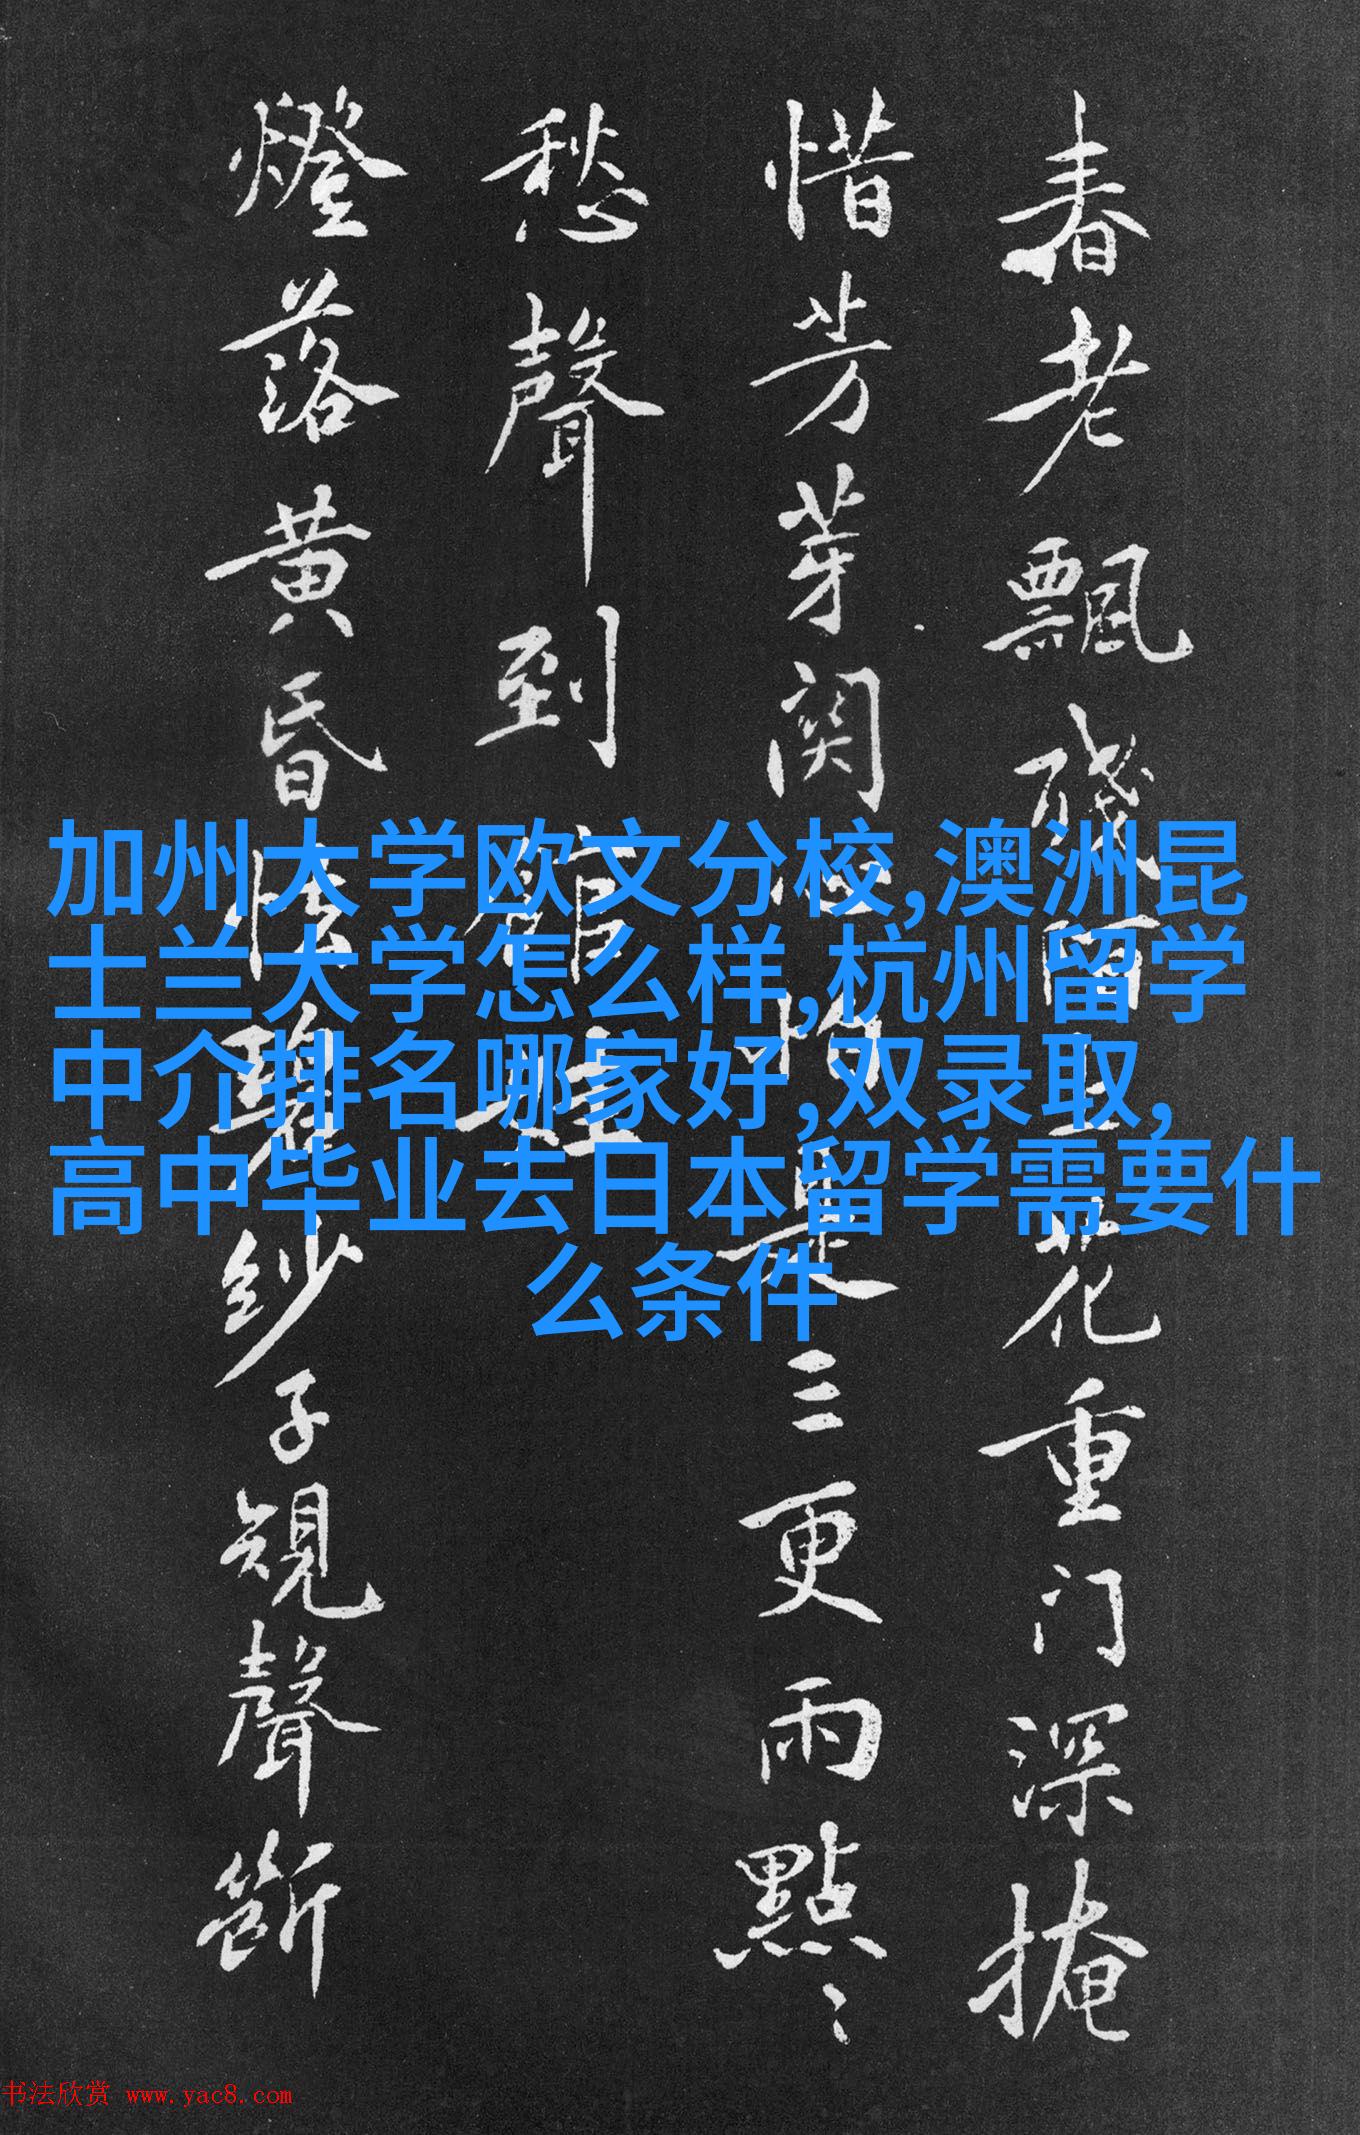 春老飄殘一一花重门深掩
惜芳芽関心的是三更雨點〻
愁聲到館娃
燈落黄昏怯碧纱子規聲断
加州大学欧文分校,澳洲昆
士兰大学怎么样,杭州留学
中介排名哪家好,双录取,
高中毕业去日本留学需要什
么条件
书法欣赏 www.yac8.com